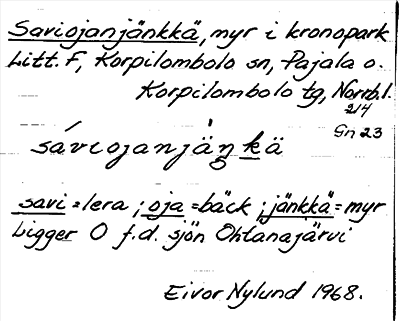 Saviojanjänkkä, myr i kronopark
Litt. F, Korpilombolo sn, Pajala o.
Korpilombolo tg, Norrb. l.
214
Gn 23
sáviojanjä̀ŋkä
savi = lera ; oja = bäck ; jänkkä = myr
Ligger O f.d. sjön Ohtanajärvi
Eivor Nylund 1968.